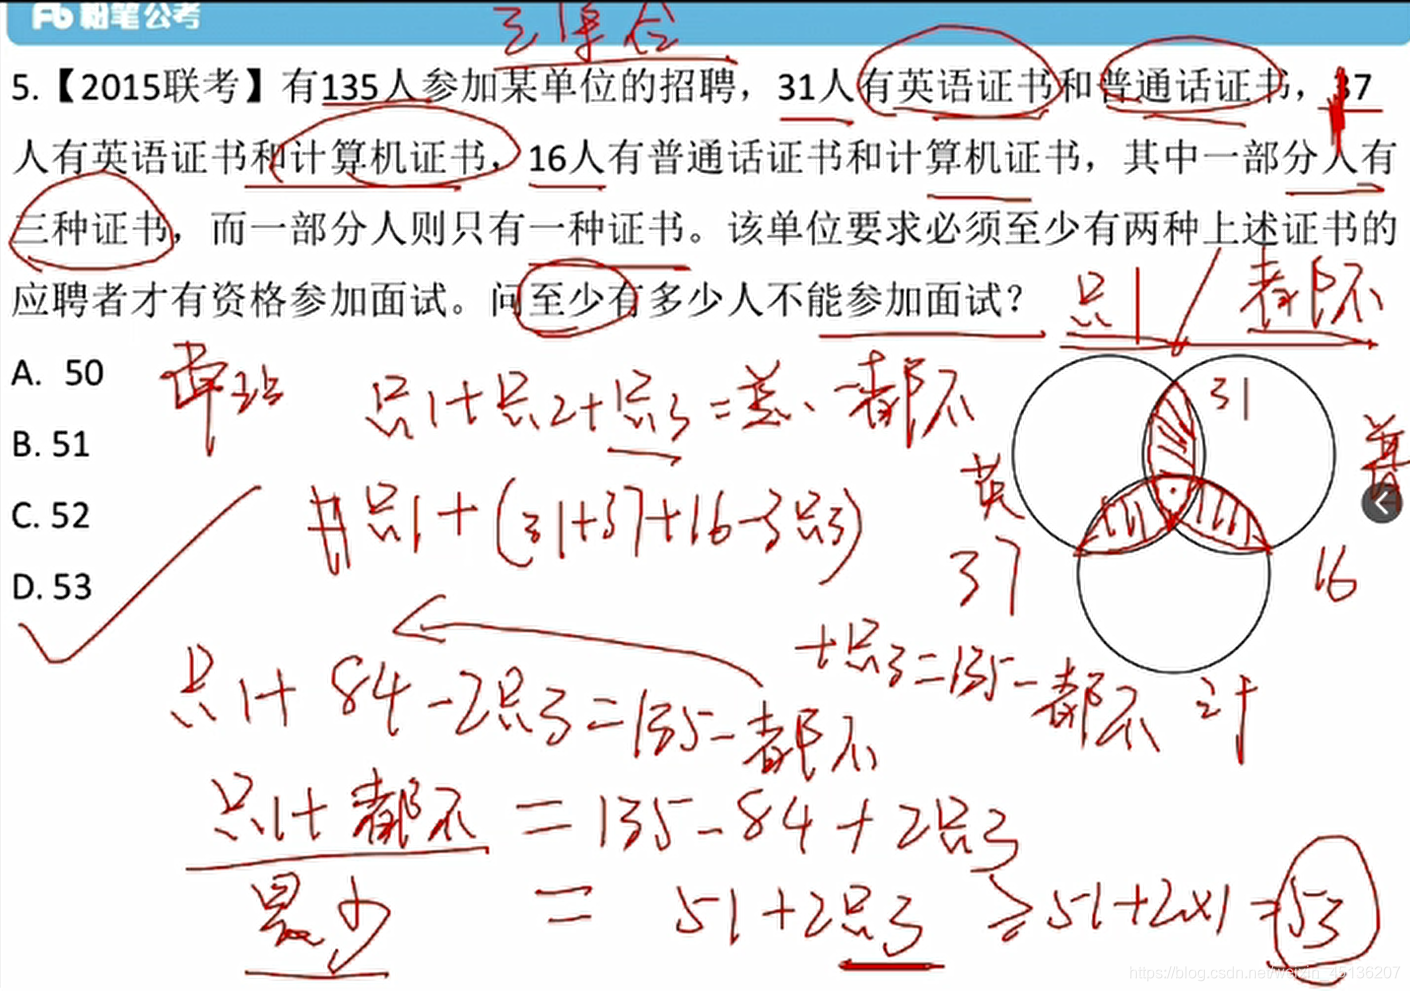 粉笔公考
三集合
5.【2015联考】有135人参加某单位的招聘，31人有英语证书和普通话证书，37
人有英语证书和计算机证书，16人有普通话证书和计算机证书，其中一部分人有
三种证书，而一部分人则只有一种证书。该单位要求必须至少有两种上述证书的
应聘者才有资格参加面试。问至少有多少人不能参加面试？
只1 / 都不
A. 50
B. 51
C. 52
D. 53
只1+只2+只3=总-都不
只1+(31+37+16-3只3)
+只3=135-都不
英
普
计
31
37
16
只1+84-2只3=135-都不
只1+都不=135-84+2只3
最少
=51+2只3≥51+2×1=53
https://blog.csdn.net/weixin_45136207